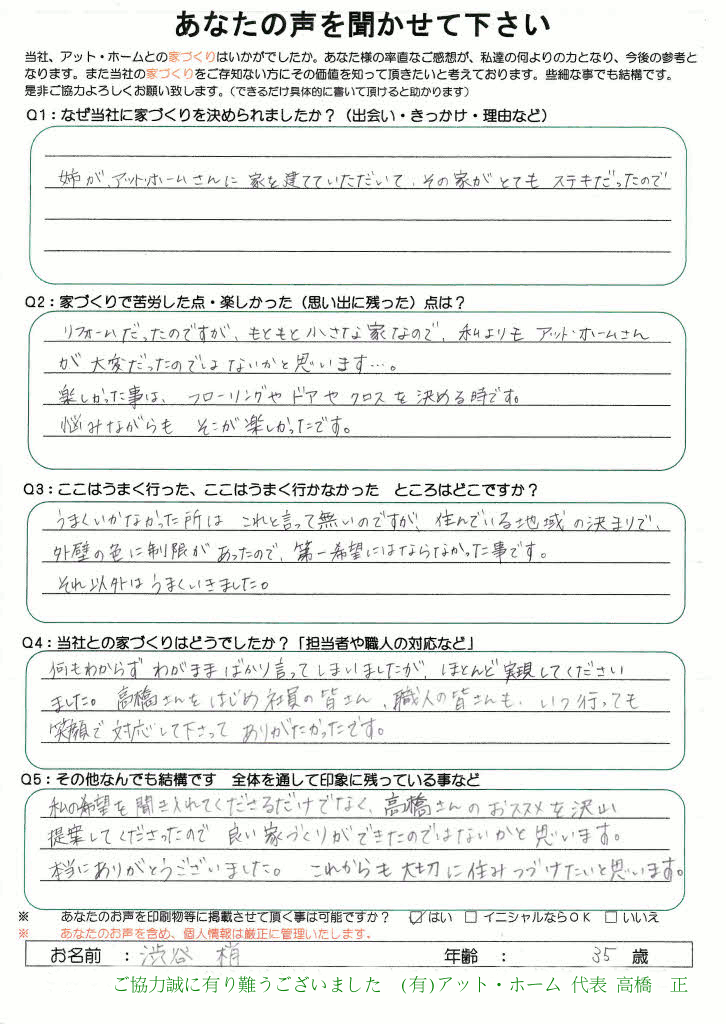 あなたの声を聞かせて下さい
当社、アット・ホームとの家づくりはいかがでしたか。あなた様の率直なご感想が、私達の何よりの力となり、今後の参考と
なります。また当社の家づくりをご存知ない方にその価値を知って頂きたいと考えております。些細な事でも結構です。
是非ご協力よろしくお願い致します。（できるだけ具体的に書いて頂けると助かります）
Q1：なぜ当社に家づくりを決められましたか？（出会い・きっかけ・理由など）
姉が、アット・ホームさんに 家を建てていただいて、その家がとても ステキだったので
Q2：家づくりで苦労した点・楽しかった（思い出に残った）点は？
リフォームだったのですが、もともと小さな家なので、私よりも アット・ホームさん
が 大変だったのではないかと思います…。
楽しかった事は、フローリングや ドアや クロスを決める時です。
悩みながらも そこが楽しかったです。
Q3：ここはうまく行った、ここはうまく行かなかった　ところはどこですか？
うまくいかなかった所は これと言って無いのですが、住んでいる地域の決まりで、
外壁の色に制限があったので、第一希望にはならなかった事です。
それ以外はうまくいきました。
Q4：当社との家づくりはどうでしたか？「担当者や職人の対応など」
何もわからず わがままばかり言ってしまいましたが、ほとんど実現してください
ました。高橋さんをはじめ社員の皆さん、職人の皆さんも、いつ行っても
笑顔で対応して下さって ありがたかったです。
Q5：その他なんでも結構です　全体を通して印象に残っている事など
私の希望を聞き入れてくださるだけでなく、高橋さんのおススメを沢山
提案してくださったので 良い家づくりができたのではないかと思います。
本当にありがとうございました。 これからも大切に住みつづけたいと思います。
※　あなたのお声を印刷物等に掲載させて頂く事は可能ですか？　☑はい　□イニシャルならＯＫ　□いいえ
※　あなたのお声を含め、個人情報は厳正に管理いたします。
お名前　：渋谷 梢　年齢　：　35 歳
ご協力誠に有り難うございました　(有)アット・ホーム 代表 高橋　正